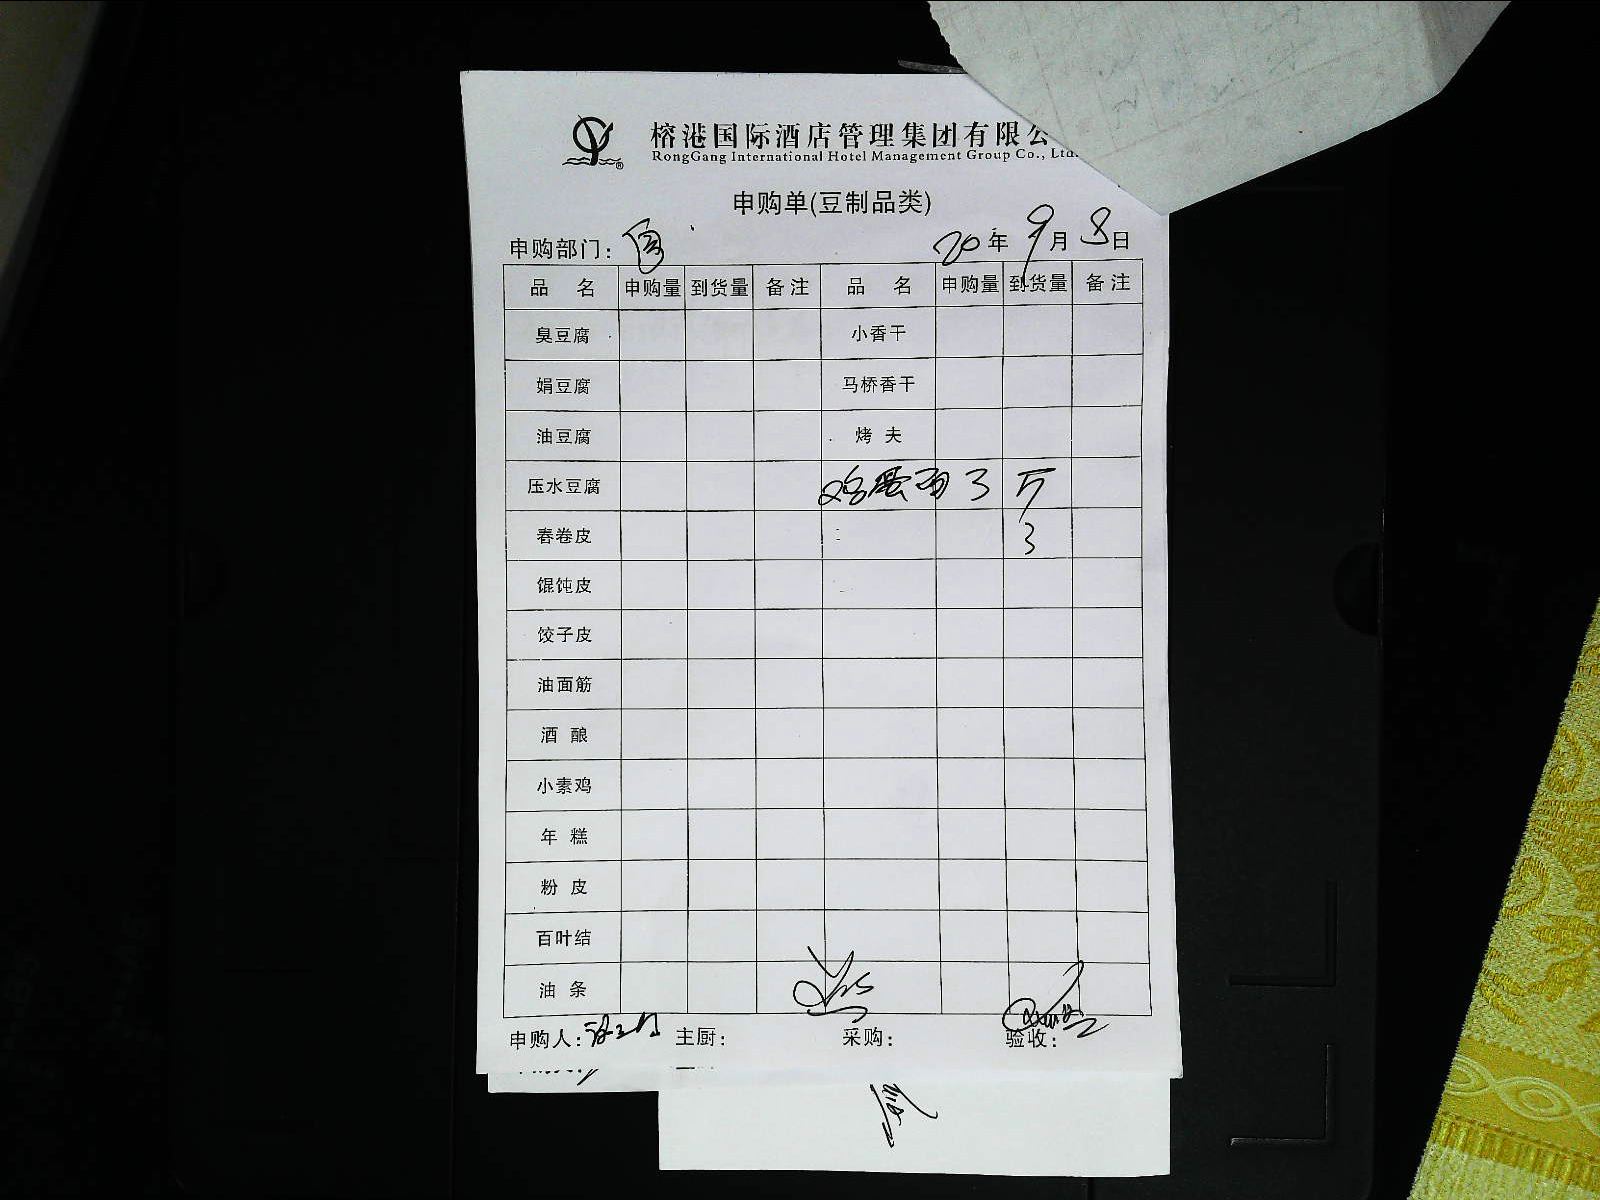 榕港国际酒店管理集团有限公
RongGang International Hotel Management Group Co., Ltd.
申购单(豆制品类)
申购部门: 20年9月8日
品 名 申购量 到货量 备注 品 名 申购量 到货量 备注
臭豆腐 小香干
娟豆腐 马桥香干
油豆腐 烤 夫
压水豆腐 鸡蛋面 3 斤
春卷皮 3
馄饨皮
饺子皮
油面筋
酒 酿
小素鸡
年 糕
粉 皮
百叶结
油 条
申购人: 主厨: 采购: 验收: